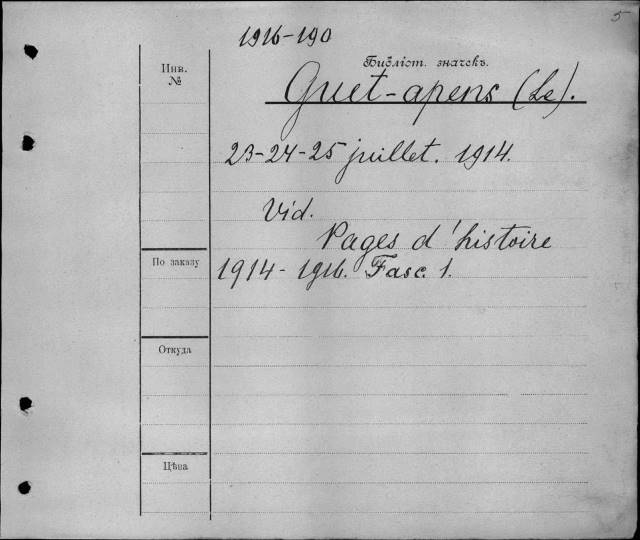 5
1916-190
Инв.
№
Библіот. значекъ.
Guet-apens (Le).
23-24-25 juillet. 1914.
Vid.
Pages d'histoire
По заказу
1914-1916. Fasc. 1.
Откуда
Цѣна